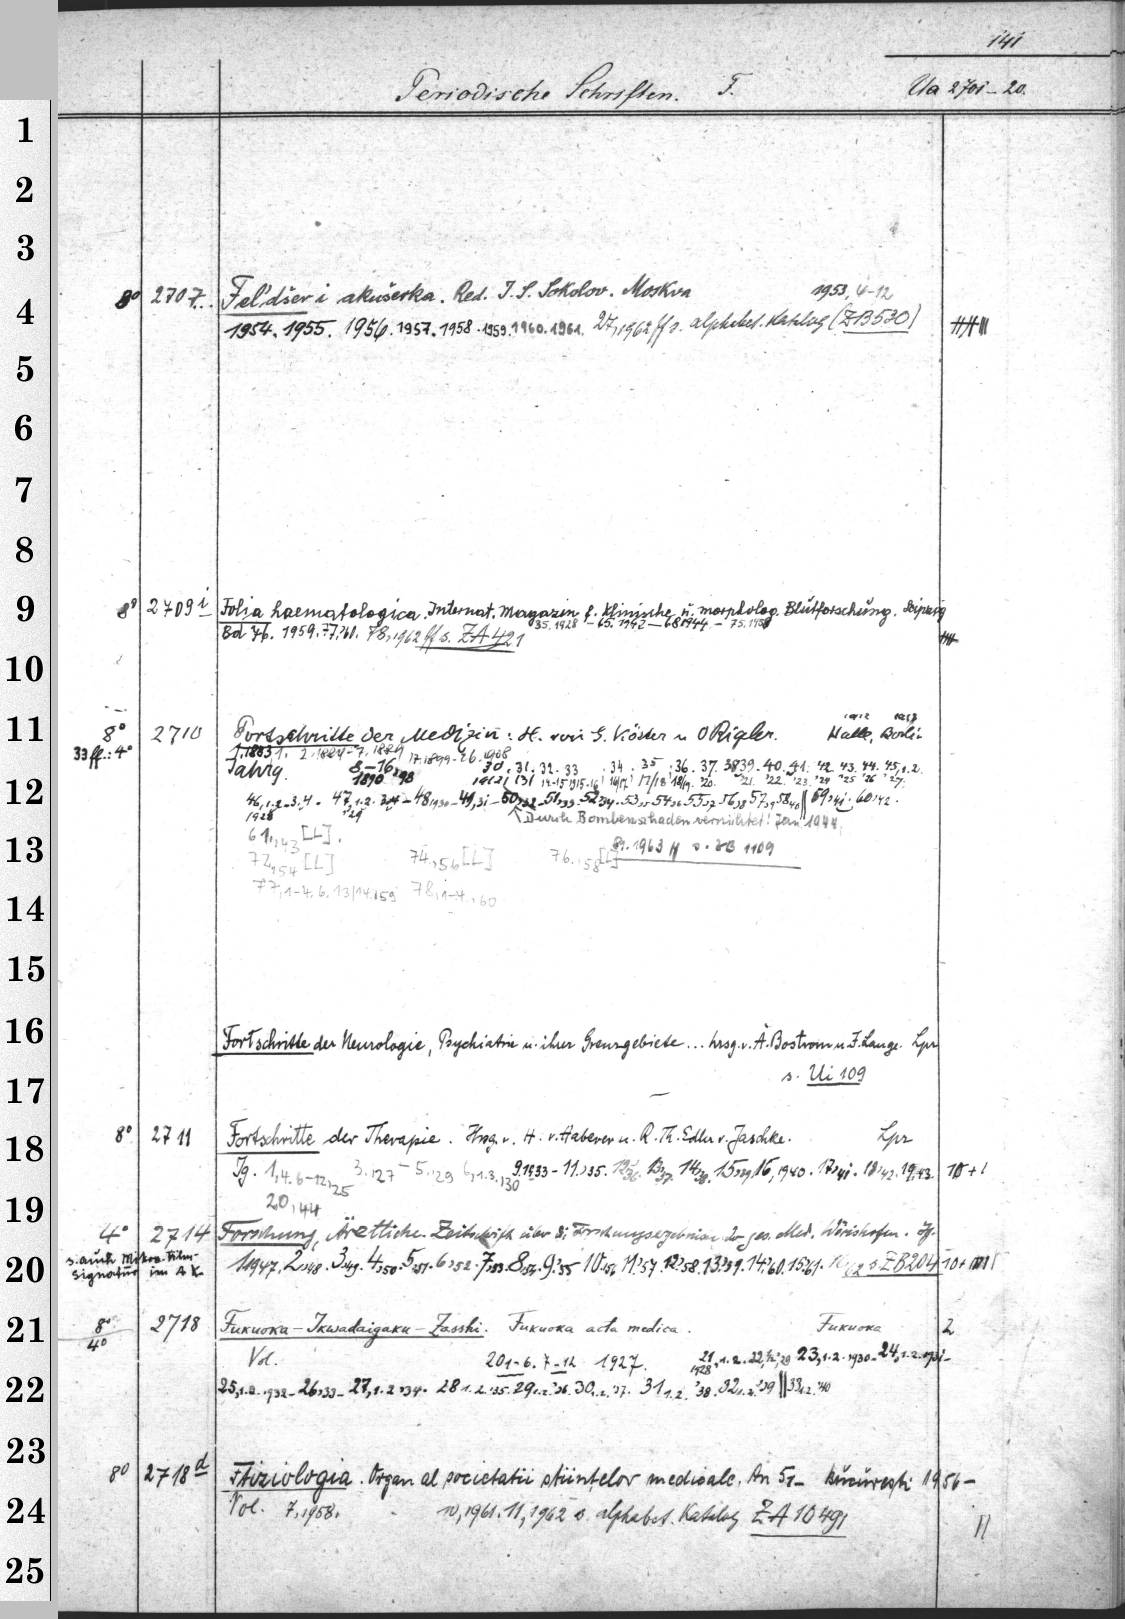 141
Periodische Schriften. F. Ua 2701-20.
1
2
3
8° 2707. Fel'dšer i akušerka. Red. I. S. Sokolov. Moskva 1953, 4-12
4
1954. 1955. 1956. 1957. 1958. 1959. 1960. 1961. 27, 1962 ff s. alphabet. Katalog (ZB 530)
5
6
7
8
9
8° 2709 i Folia haematologica. Internat. Magazin f. klinische u. morpholog. Blutforschung. Leipzig
35.1928 - 65.1942 - 68.1944. - 75.1958
Bd 76. 1959. 77.'60. 78, 1962 ff s. ZA 421
10
11
8° 2710 Fortschritte der Medizin: H. von G. Köster u O Rigler. Halle, Berlin
33 ff.: 4°
1.1883 2.1884-7.1889 17.1899-26.1908
Jahrg. 8-16. 30. 31. 32. 33. 34. 35. 36. 37. 38 39. 40. 41. 42. 43. 44. 45,1.2.
1890 98
12
↑ Durch Bombenschaden vernichtet! Jan 1944.
61, 43 [L].
81. 1963 ff s. ZB 1109
13
72, 54 [L] 74, 56 [L] 76, 58 [L]
77, 1-4. 6. 13/14. 59 78, 1-4, 60
14
15
16
Fortschritte der Neurologie, Psychiatrie u. ihrer Grenzgebiete ... hrsg. v. A. Bostroem u. J. Lange. Lpz
s. Ui 109
17
18
8° 2711 Fortschritte der Therapie. Hrsg. v. H. v. Haberer u. R. Th. Edler v. Jaschke. Lpz
Jg. 1, 4. 6-12, 25 3. '27 - 5. '29 6, 1.3. '30 9. 1933 - 11. '35. 12. '36. 13. '37. 14. '38. 15. '39 16, 1940. 17, '41. 18, '42. 19, '43. 10 + 1
20, 44
19
4° 2714 Forschung, Ärztliche. Zeitschrift über die Forschungsergebnisse d. ges. Med. Wörishofen. Jg.
s. auch Mikro-Film-
signatur im AK
20
1. 1947, 2. '48. 3. '49. 4. '50. 5. '51. 6. '52 - 7. '53. 8. '54. 9. '55 10. '56 11. '57. 12. '58. 13. '59. 14. '60. 15. '61. s. ZB 204
21
8° 2718 Fukuoka-Ikwadaigaku-Zasshi. Fukuoka acta medica. Fukuoka 2
4°
Vol. 20 1-6. 7-12 1927. 21, 1.2. 22, 1/2, '29 23, 1.2. 1930 - 24, 1.2. 1931 -
1928
22
25, 1.2. 1932 - 26, '33 - 27, 1.2. '34. 28 1.2. '35. 29 1.2. '36. 30, 1.2. '37. 31 1.2. '38. 32 1.2. '39 || 33 1.2. '40
23
8° 2718 d Ftiziologia. Organ al societatii stiintelor medicale. An 5, - București 1956 -
24
Vol. 7. 1958. 10, 1961. 11, 1962 s. alphabet. Katalog ZA 10491
25